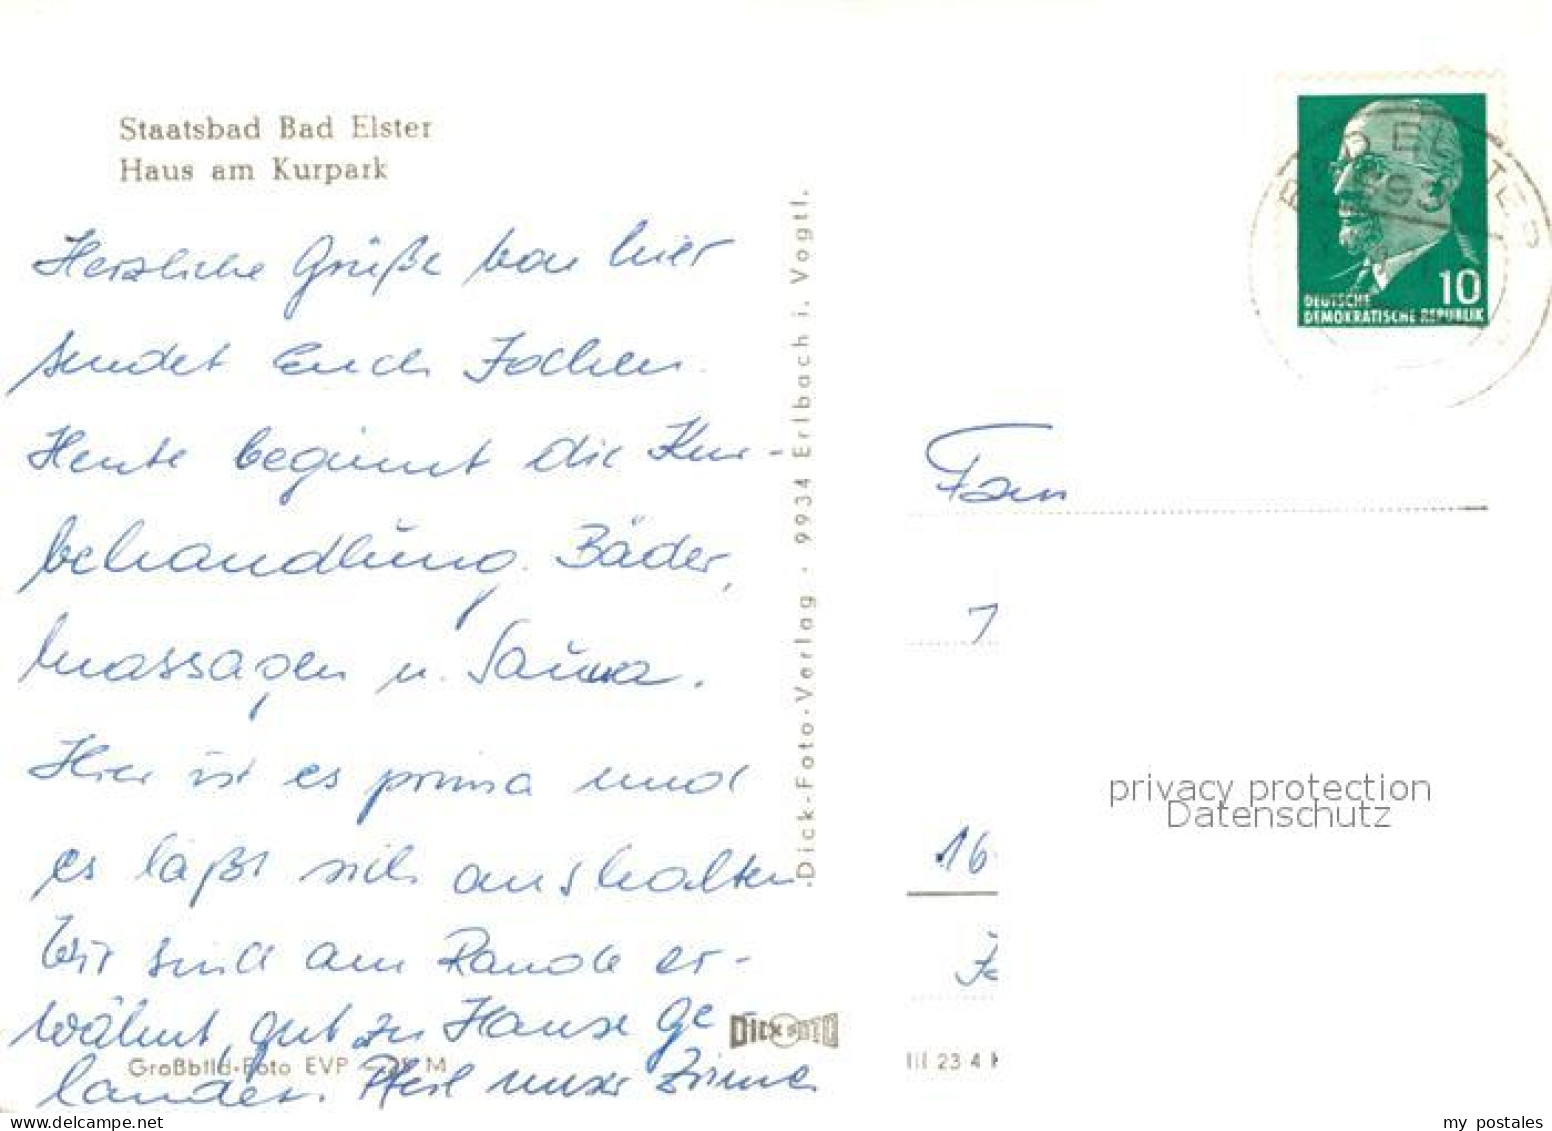 Staatsbad Bad Elster
Haus am Kurpark
Herzliche Grüße von hier
sendet Euch Jochen.
Heute beginnt die Kur-
behandlung. Bäder,
Massagen u. Sauna.
Hier ist es prima und
es läßt sich aushalten
Wir sind am Rande er-
wähnt, gut zu Hause ge-
landet. Pfeil unser Zimmer
Großbild-Foto EVP M
DICK FOTO
Dick-Foto-Verlag · 9934 Erlbach i. Vogtl.
BAD ELSTER
10
DEUTSCHE
DEMOKRATISCHE REPUBLIK
Fam
16
III 23 4
privacy protection
Datenschutz
www.delcampe.net
my postales